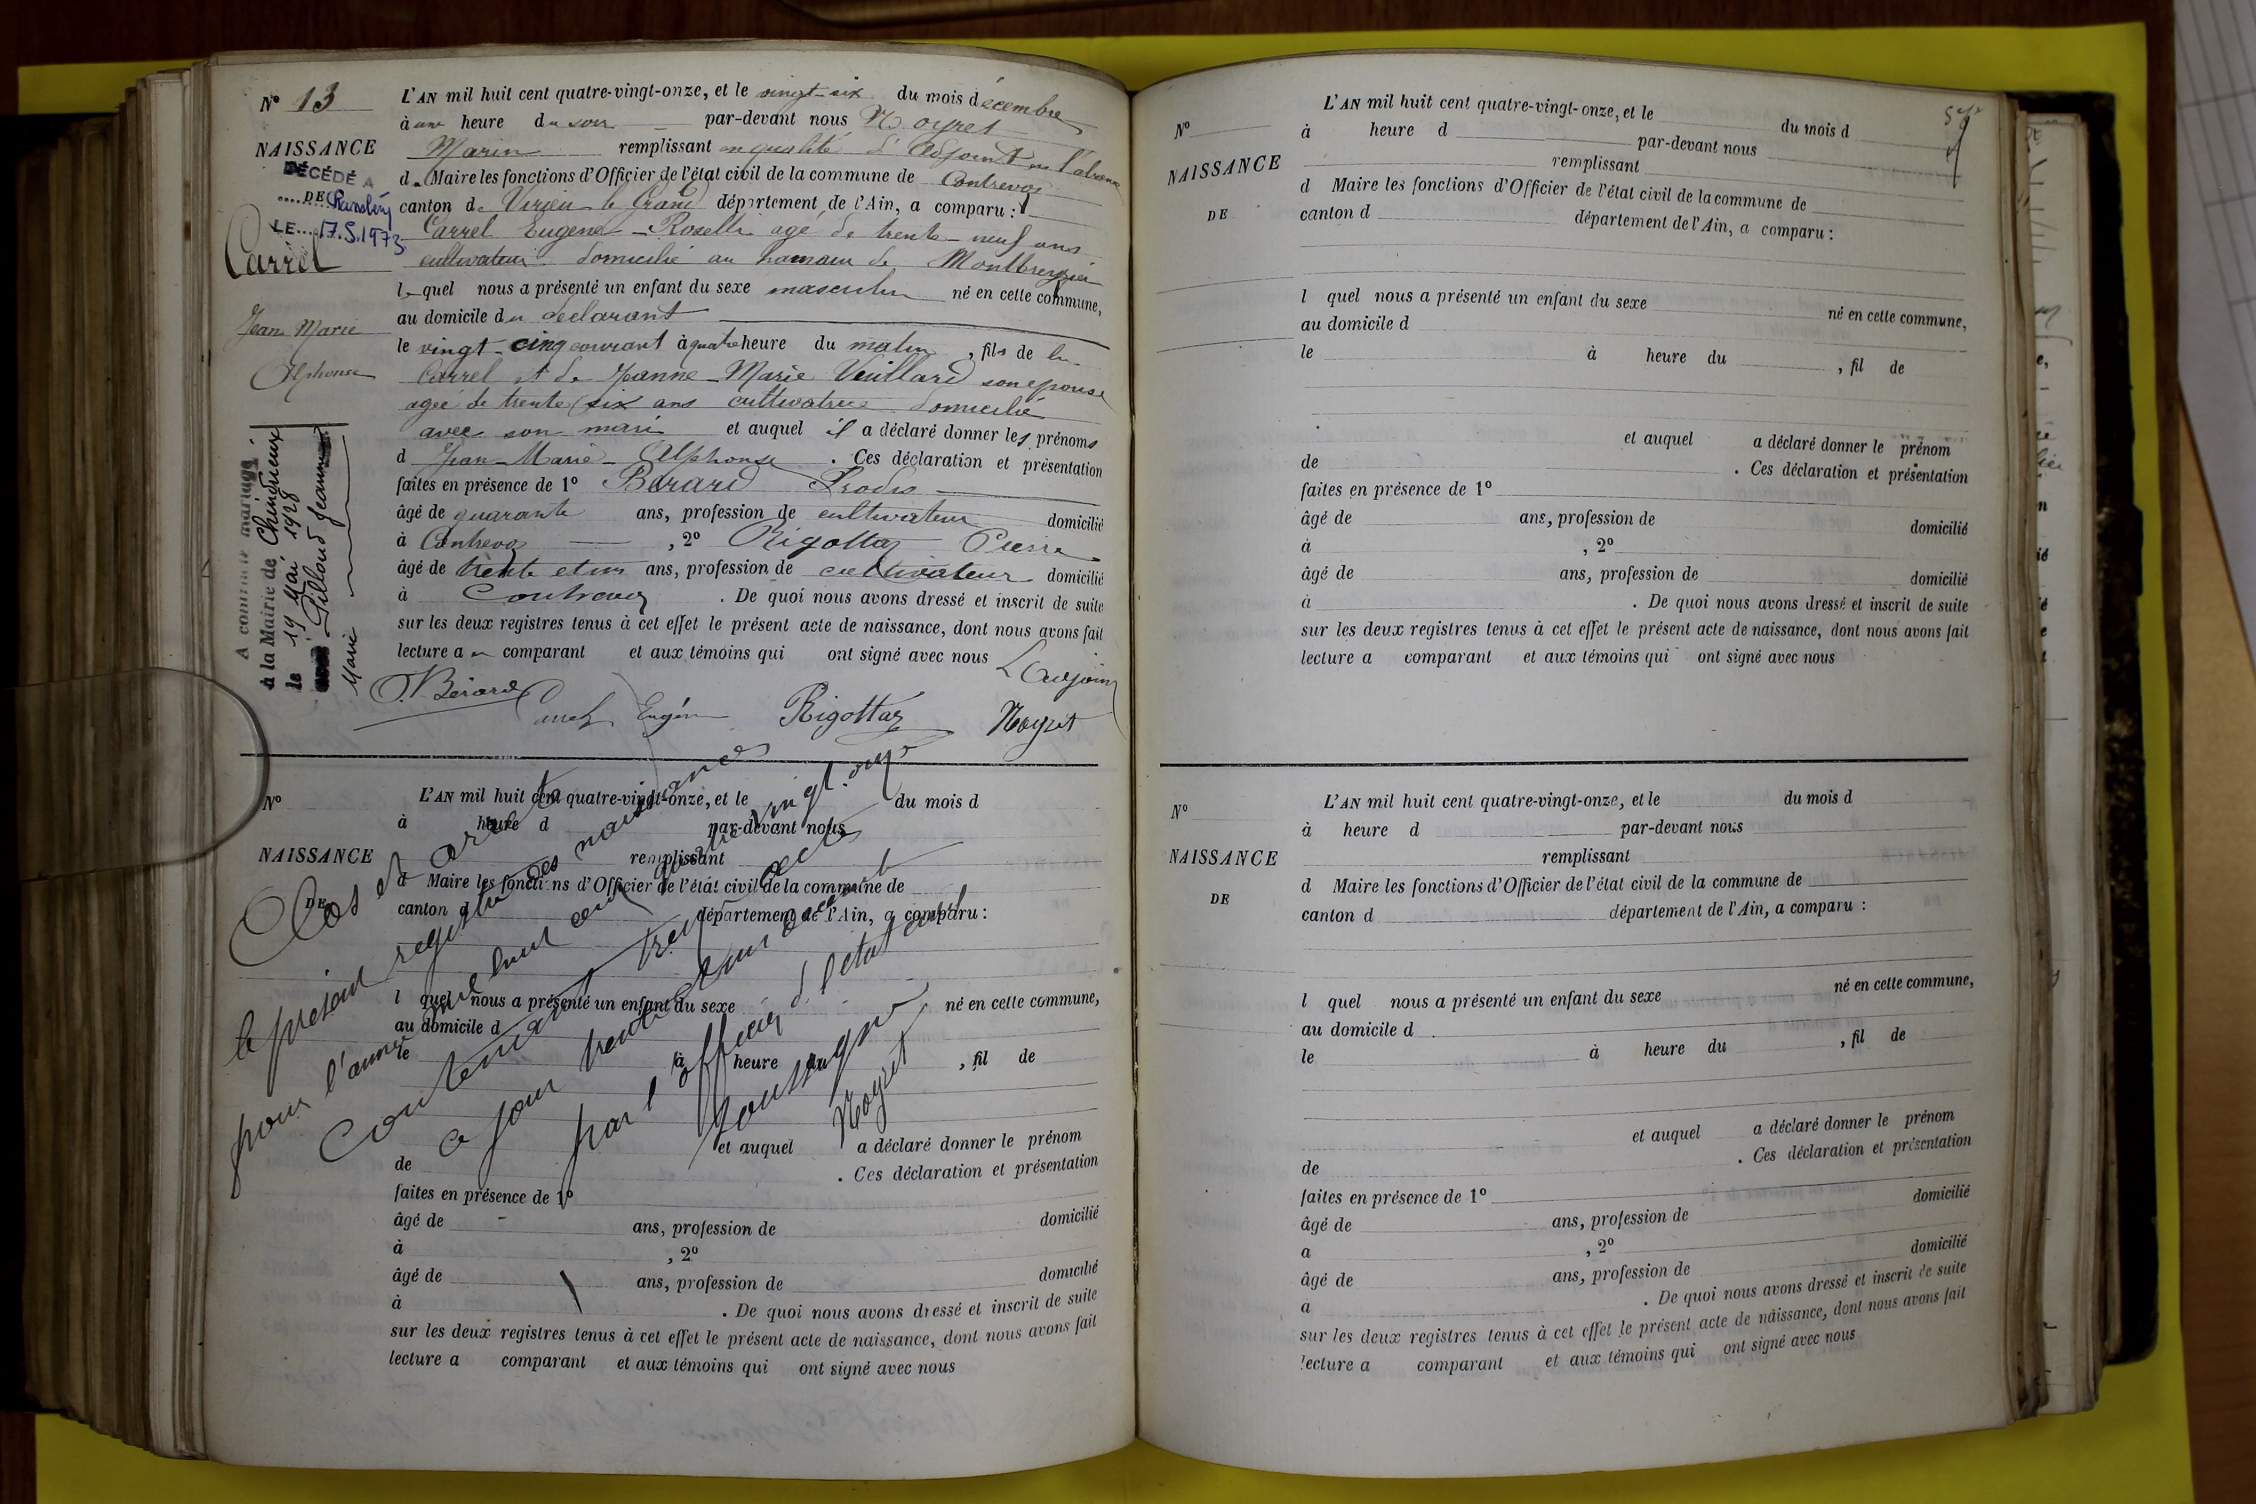 N° 13
NAISSANCE
DÉCÉDÉ A
DE
LE 17.5.1973
Carrel
Jean Marie
Alphonse
A contracté mariage
à la Mairie de Cheindrieux
le 19 Mai 1928
Pillard Jeanne
Marie
L'AN mil huit cent quatre-vingt-onze, et le vingt-six du mois décembre
à une heure du soir par-devant nous Moyret
Marin remplissant en qualité d'Adjoint en l'absence
du Maire les fonctions d'Officier de l'état civil de la commune de Contrevoz
canton de Virieu le Grand département de l'Ain, a comparu :
Carrel Eugène - Roselli agé de trente - neuf ans
cultivateur domicilié au hameau de Montbreyzieu
lequel nous a présenté un enfant du sexe masculin né en cette commune,
au domicile du déclarant
le vingt-cinq courant à quatre heure du matin, fils de lui
Carrel et de Jeanne-Marie Vuillard son épouse
agée de trente six ans cultivatrice domicilié
avec son mari et auquel il a déclaré donner les prénoms
d Jean-Marie-Alphonse. Ces déclaration et présentation
faites en présence de 1° Bérard
âgé de quarante ans, profession de cultivateur domicilié
à Contrevoz, 2° Rigottaz Pierre
âgé de trente et un ans, profession de cultivateur domicilié
à Contrevoz. De quoi nous avons dressé et inscrit de suite
sur les deux registres tenus à cet effet le présent acte de naissance, dont nous avons fait
lecture au comparant et aux témoins qui ont signé avec nous
L'adjoint
Bérard Carrel Eugène Rigottaz Moyret
N°
NAISSANCE
DE
L'AN mil huit cent quatre-vingt-onze, et le du mois d
à heure d par-devant nous
remplissant
d Maire les fonctions d'Officier de l'état civil de la commune de
canton d département de l'Ain, a comparu :
l quel nous a présenté un enfant du sexe né en cette commune,
au domicile d
le à heure du , fil de
et auquel a déclaré donner le prénom
de . Ces déclaration et présentation
faites en présence de 1°
âgé de ans, profession de domicilié
à , 2°
âgé de ans, profession de domicilié
à . De quoi nous avons dressé et inscrit de suite
sur les deux registres tenus à cet effet le présent acte de naissance, dont nous avons fait
lecture a comparant et aux témoins qui ont signé avec nous
Clos et arrêté
le présent registre des naissances
pour l'année mil huit cent quatre vingt-onze
Contenant treize actes
ce jour trente et un décembre
par l'officier de l'état civil
soussigné
Moyret
N°
NAISSANCE
DE
L'AN mil huit cent quatre-vingt-onze, et le du mois d
à heure d par-devant nous
remplissant
d Maire les fonctions d'Officier de l'état civil de la commune de
canton d département de l'Ain, a comparu :
l quel nous a présenté un enfant du sexe né en cette commune,
au domicile d
le à heure du , fil de
et auquel a déclaré donner le prénom
de . Ces déclaration et présentation
faites en présence de 1°
âgé de ans, profession de domicilié
à , 2°
âgé de ans, profession de domicilié
à . De quoi nous avons dressé et inscrit de suite
sur les deux registres tenus à cet effet le présent acte de naissance, dont nous avons fait
lecture a comparant et aux témoins qui ont signé avec nous
N°
NAISSANCE
DE
L'AN mil huit cent quatre-vingt-onze, et le du mois d
à heure d par-devant nous
remplissant
d Maire les fonctions d'Officier de l'état civil de la commune de
canton d département de l'Ain, a comparu :
l quel nous a présenté un enfant du sexe né en cette commune,
au domicile d
le à heure du , fil de
et auquel a déclaré donner le prénom
de . Ces déclaration et présentation
faites en présence de 1°
âgé de ans, profession de domicilié
a , 2°
âgé de ans, profession de domicilié
a . De quoi nous avons dressé et inscrit de suite
sur les deux registres tenus à cet effet le présent acte de naissance, dont nous avons fait
lecture a comparant et aux témoins qui ont signé avec nous